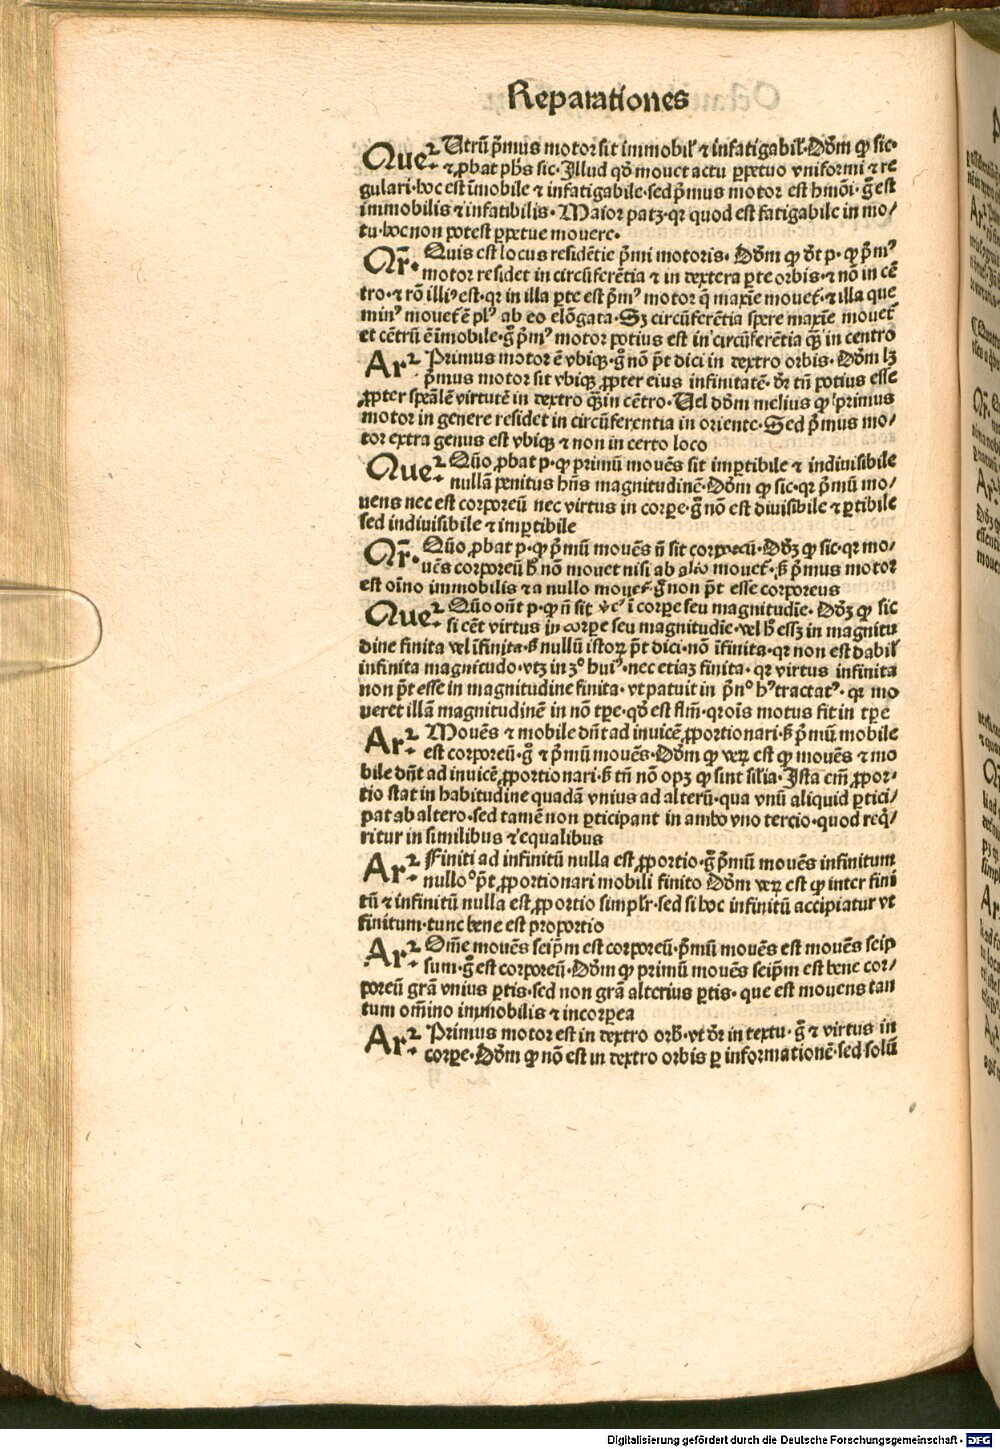 Reparationes
Que2. Utrū p̄mus motor sit immobil' ⁊ infatigabil'. Dōm ꝙ sic.
⁊ ꝓbat ph̄s sic. Illud qd̄ mouet actu ꝑpetuo vniformi ⁊ re
gulari. hoc est īmobile ⁊ infatigabile. sed p̄mus motor est hmōi. g̊ est
immobilis ⁊ infatibilis. Maior patꝫ. qꝛ quod est fatigabile in mo/
tu. hoc non potest ꝑpetue mouere.
Qr̄. Quis est locus residētie p̄mi motoris. Dōm ꝙ d̄t p. ꝙ p̄mꝰ
motor residet in circūferētia ⁊ in dextera ꝑte orbis. ⁊ nō in cē
tro. ⁊ rō illiꝰ est. qꝛ in illa ꝑte est p̄mꝰ motor q̄ maxīe mouet. ⁊ illa que
minꝰ mouet ē plꝰ ab eo elōgata. Sꝫ circūferētia spere maxīe mouet
et cētrū ē īmobile. g̊ p̄mꝰ motor potius est in circūferētia qꝫ in centro
Ar2. Primus motor ē vbiqꝫ. g̊ nō p̄t dici in dextro orbis. Dōm lꝫ
p̄mus motor sit vbiqꝫ ꝓpter eius infinitatē. dr̄ tn̄ potius esse
ꝓpter sp̄ealē virtutē in dextro qꝫ in cētro. Uel dōm melius ꝙ primus
motor in genere residet in circūferentia in oriente. Sed p̄mus mo/
tor extra genus est vbiqꝫ ⁊ non in certo loco
Que2. Quō ꝓbat p. ꝙ primū mouēs sit imꝑtibile ⁊ indiuisibile
nullā penitus hn̄s magnitudinē. Dōm ꝙ sic. qꝛ p̄mū mo/
uens nec est corporeū nec virtus in corꝑe. g̊ nō est diuisibile ⁊ ꝑtibile
sed indiuisibile ⁊ imꝑtibile
Qr̄. Quō ꝓbat p. ꝙ p̄mū mouēs nō sit corporeū. Dōꝫ ꝙ sic. qꝛ mo/
uēs corporeū h̄ nō mouet nisi ab alio mouet. s̄ p̄mus motor
est oīno immobilis ⁊ a nullo mouet. g̊ non p̄t esse corporeus
Que2. Quō on̄t p. ꝙ nō sit v̄tꝰ ī corꝑe seu magnitudīe. Dōꝫ ꝙ sic
si cēt virtus in corꝑe seu magnitudīe. vel h̄ essꝫ in magnitu
dine finita vel īfinita. s̄ nullū istoꝝ p̄t dici. nō īfinita. qꝛ non est dabil'
infinita magnitudo. vtꝫ in 3o huiꝰ. nec etiaꝫ finita. qꝛ virtus infinita
non p̄t esse in magnitudine finita. vt patuit in p̄no hꝰ tractatꝰ. qꝛ mo
ueret illā magnitudinē in nō tꝑe. qd̄ est flm̄. qꝛ oīs motus fit in tꝑe
Ar2. Mouēs ⁊ mobile dn̄t ad inuicē ꝓportionari. s̄ p̄mū mobile
est corporeū. g̊ ⁊ p̄mū mouēs. Dōm ꝙ veꝝ est ꝙ mouēs ⁊ mo
bile dn̄t ad inuicē ꝓportionari. s̄ tn̄ nō opꝫ ꝙ sint sīlia. Ista em̄ ꝓpor/
tio stat in habitudine quadā vnius ad alterū. qua vnū aliquid ꝑtici/
pat ab altero. sed tamē non ꝑticipant in ambo vno tercio. quod req̄/
ritur in similibus ⁊ equalibus
Ar2. Finiti ad infinitū nulla est ꝓportio. g̊ p̄mū mouēs infinitum
nullo͛ p̄t ꝓportionari mobili finito Dōm veꝝ est ꝙ inter fini
tū ⁊ infinitū nulla est ꝓportio simplr̄. sed si hoc infinitū accipiatur vt
finitum. tunc bene est proportio
Ar2. Om̄e mouēs seip̄m est corporeū. p̄mū mouēs est mouēs seip
sum. g̊ est corporeū. Dōm ꝙ primū mouēs seip̄m est bene cor/
poreū grā vnius ꝑtis. sed non grā alterius ꝑtis. que est mouens tan
tum om̄ino immobilis ⁊ incorꝑea
Ar2. Primus motor est in dextro orb'. vt dr̄ in textu. g̊ ⁊ virtus in
corꝑe. Dōm ꝙ nō est in dextro orbis ꝑ informationē. sed solū
Digitalisierung gefördert durch die Deutsche Forschungsgemeinschaft - DFG